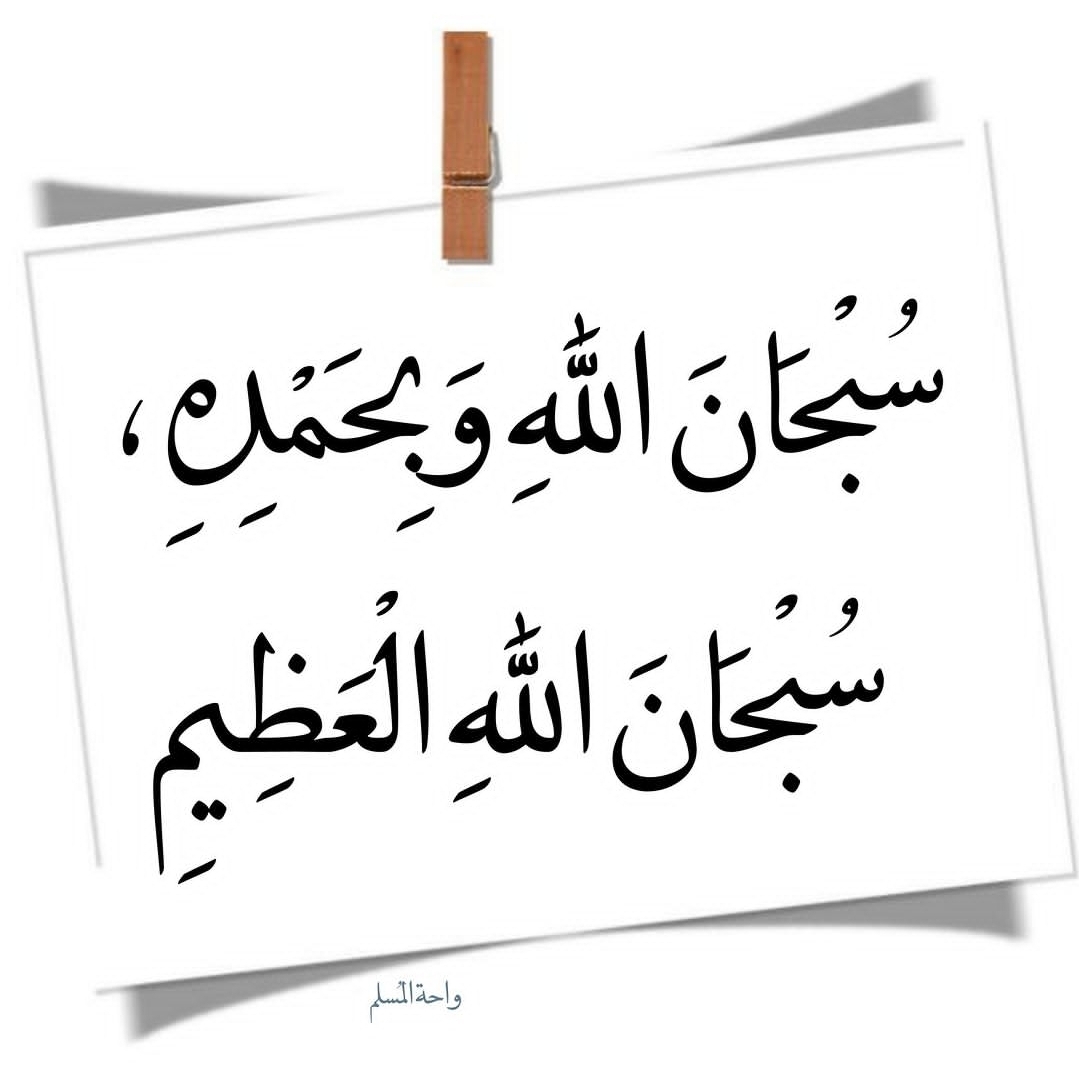 سُبْحَانَ اللَّهِ وَبِحَمْدِهِ ،
سُبْحَانَ اللَّهِ الْعَظِيمِ
واحة المُسلم